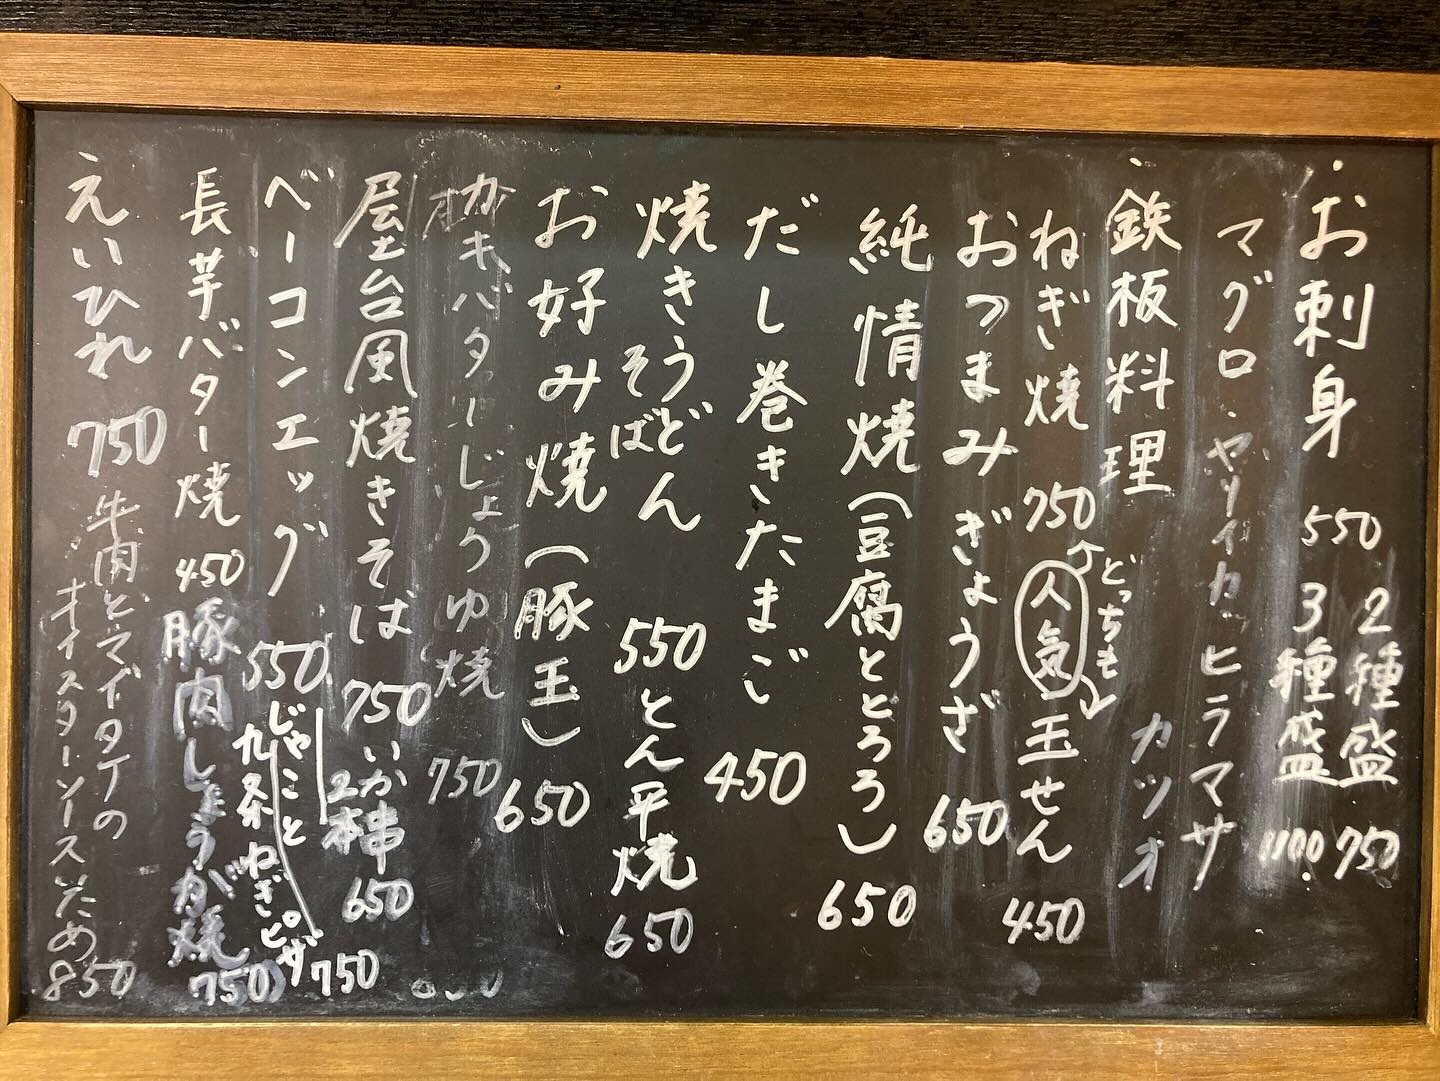 お刺身 550 2種盛 750
3種盛 1100
マグロ・ヤリイカ・ヒラマサ
カツオ
鉄板料理
どっちも
ねぎ焼 750 人気 玉せん 450
おつまみぎょうざ 650
純情焼(豆腐ととろろ) 650
だし巻きたまご 450
焼きうどん
そば 550 とん平焼 650
お好み焼(豚玉) 650
カキバターじょうゆ焼 750
屋台風焼きそば 750 いか串 2本 650
ベーコンエッグ 550 じゃこと
九条ねぎピザ 750
長芋バター焼 450 豚肉しょうが焼 750
えいひれ 750 牛肉とマイタケの
オイスターソースいため 850